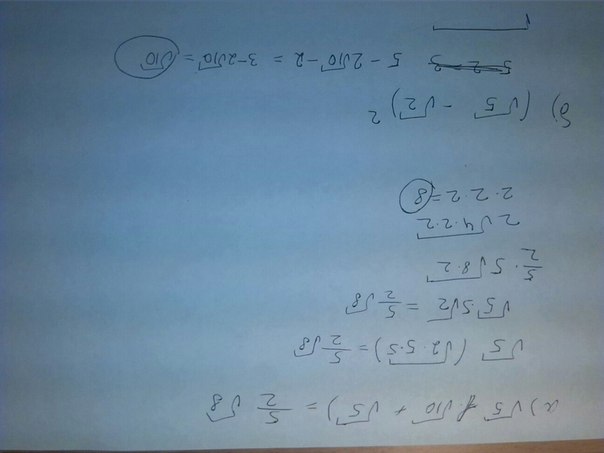 а) √5 (√10 + √5) = 5/2 √8
√5 (√2·5·5) = 5/2 √8
√5 5√2 = 5/2 √8
5/2 · 5√8·2
2√4·2·2
2·2·2=8
б) (√5 - √2)²
5 - 2√10 - 2 = 3-2√10 = √10